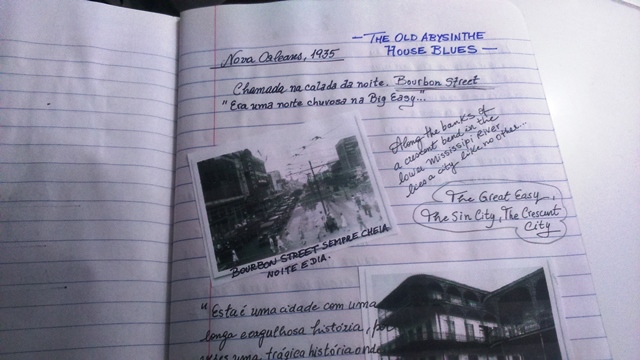 — THE OLD ABYSINTHE
HOUSE BLUES —
Nova Orleans, 1935
Chamada na calada da noite. Bourbon Street
"Era uma noite chuvosa na Big Easy..."
Along the banks of
a crescent bend in the
lower Mississipi River
lies a city like no other...
The Great Easy,
The Sin City, The Crescent
City
BOURBON STREET SEMPRE CHEIA
NOITE E DIA.
"Esta é uma cidade com uma
longa e orgulhosa história,
uma trágica história onde